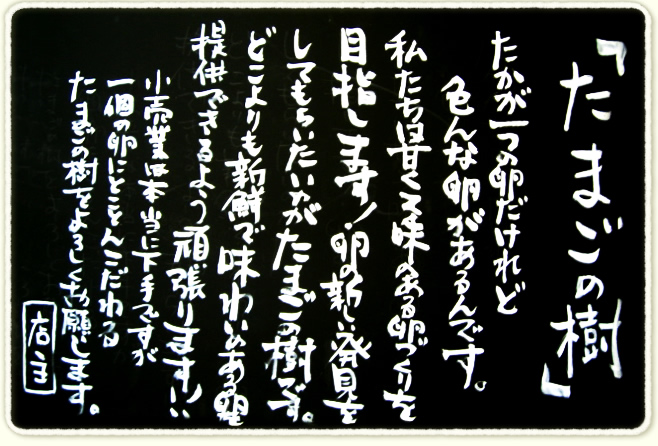 「たまごの樹」
たかが一つの卵だけれど
色んな卵があるんです。
私たちは甘くて味のある卵づくりを
目指します！卵の新しい発見を
してもらいたいのがたまごの樹です。
どこよりも新鮮で味わいのある卵を
提供できるよう頑張ります!!
小売業は本当に下手ですが
一個の卵にとことんこだわる
たまごの樹をよろしくお願いします。
店主